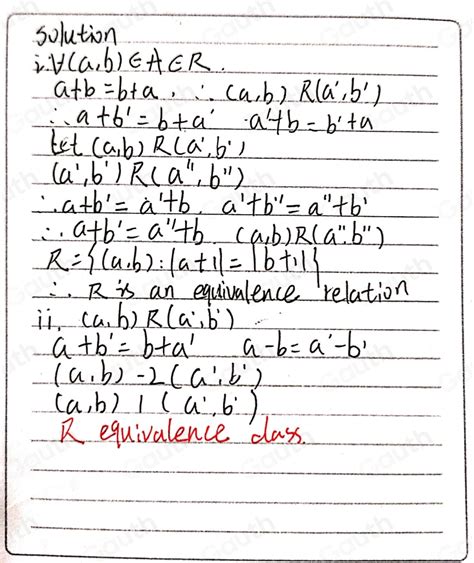 solution
i. ∀(a,b)∈A∈R.
a+b=b+a, ∴ (a,b) R(a',b')
∴ a+b'=b+a' a'+b=b'+a
let (a,b) R(a',b')
(a',b') R(a",b")
∴ a+b'=a'+b a'+b"=a"+b'
∴ a+b'=a"+b (a,b)R(a".b")
R={(a.b):|a+1|=|b+1|}
∴ R is an equivalence relation
ii. (a,b) R(a',b')
a+b'=b+a' a-b=a'-b'
(a,b) -2(a',b')
(a,b) 1 (a',b')
R equivalence class.